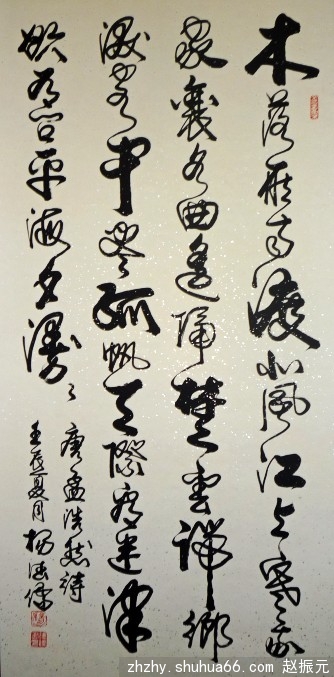 木落雁南渡北風江上寒我
家襄水曲遥隔楚雲端鄉
淚客中盡孤帆天際看迷津
欲有問平海夕漫〻
唐孟浩然詩
壬戌夏月 楊
zhzhy.shuhua66.com 赵振元